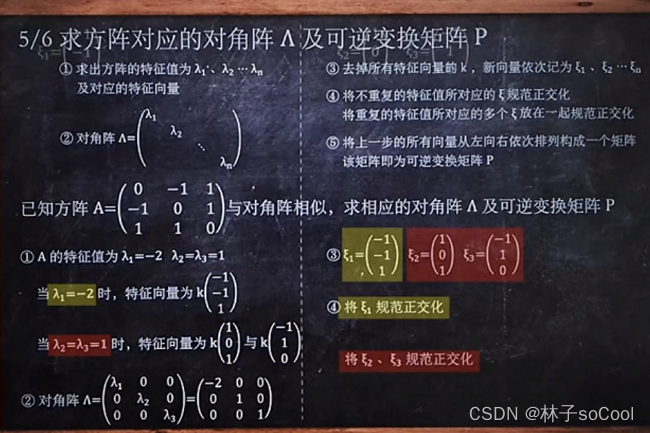 5/6 求方阵对应的对角阵 Λ 及可逆变换矩阵 P
① 求出方阵的特征值为 λ₁、λ₂ ⋯ λₙ
及对应的特征向量
② 对角阵 Λ=(λ₁ λ₂ ⋱ λₙ)
③ 去掉所有特征向量的 k，新向量依次记为 ξ₁、ξ₂ ⋯ ξₙ
④ 将不重复的特征值所对应的 ξ 规范正交化
将重复的特征值所对应的多个 ξ 放在一起规范正交化
⑤ 将上一步的所有向量从左向右依次排列构成一个矩阵
该矩阵即为可逆变换矩阵 P
已知方阵 A=
(0 -1 1
-1 0 1
1 1 0)
与对角阵相似，求相应的对角阵 Λ 及可逆变换矩阵 P
① A 的特征值为 λ₁=-2 λ₂=λ₃=1
当 λ₁=-2 时，特征向量为 k(-1 -1 1)
当 λ₂=λ₃=1 时，特征向量为 k(1 0 1) 与 k(-1 1 0)
② 对角阵 Λ=
(λ₁ 0 0
0 λ₂ 0
0 0 λ₃)
=
(-2 0 0
0 1 0
0 0 1)
③ ξ₁=(-1 -1 1) ξ₂=(1 0 1) ξ₃=(-1 1 0)
④ 将 ξ₁ 规范正交化
将 ξ₂、ξ₃ 规范正交化
CSDN @林子soCool